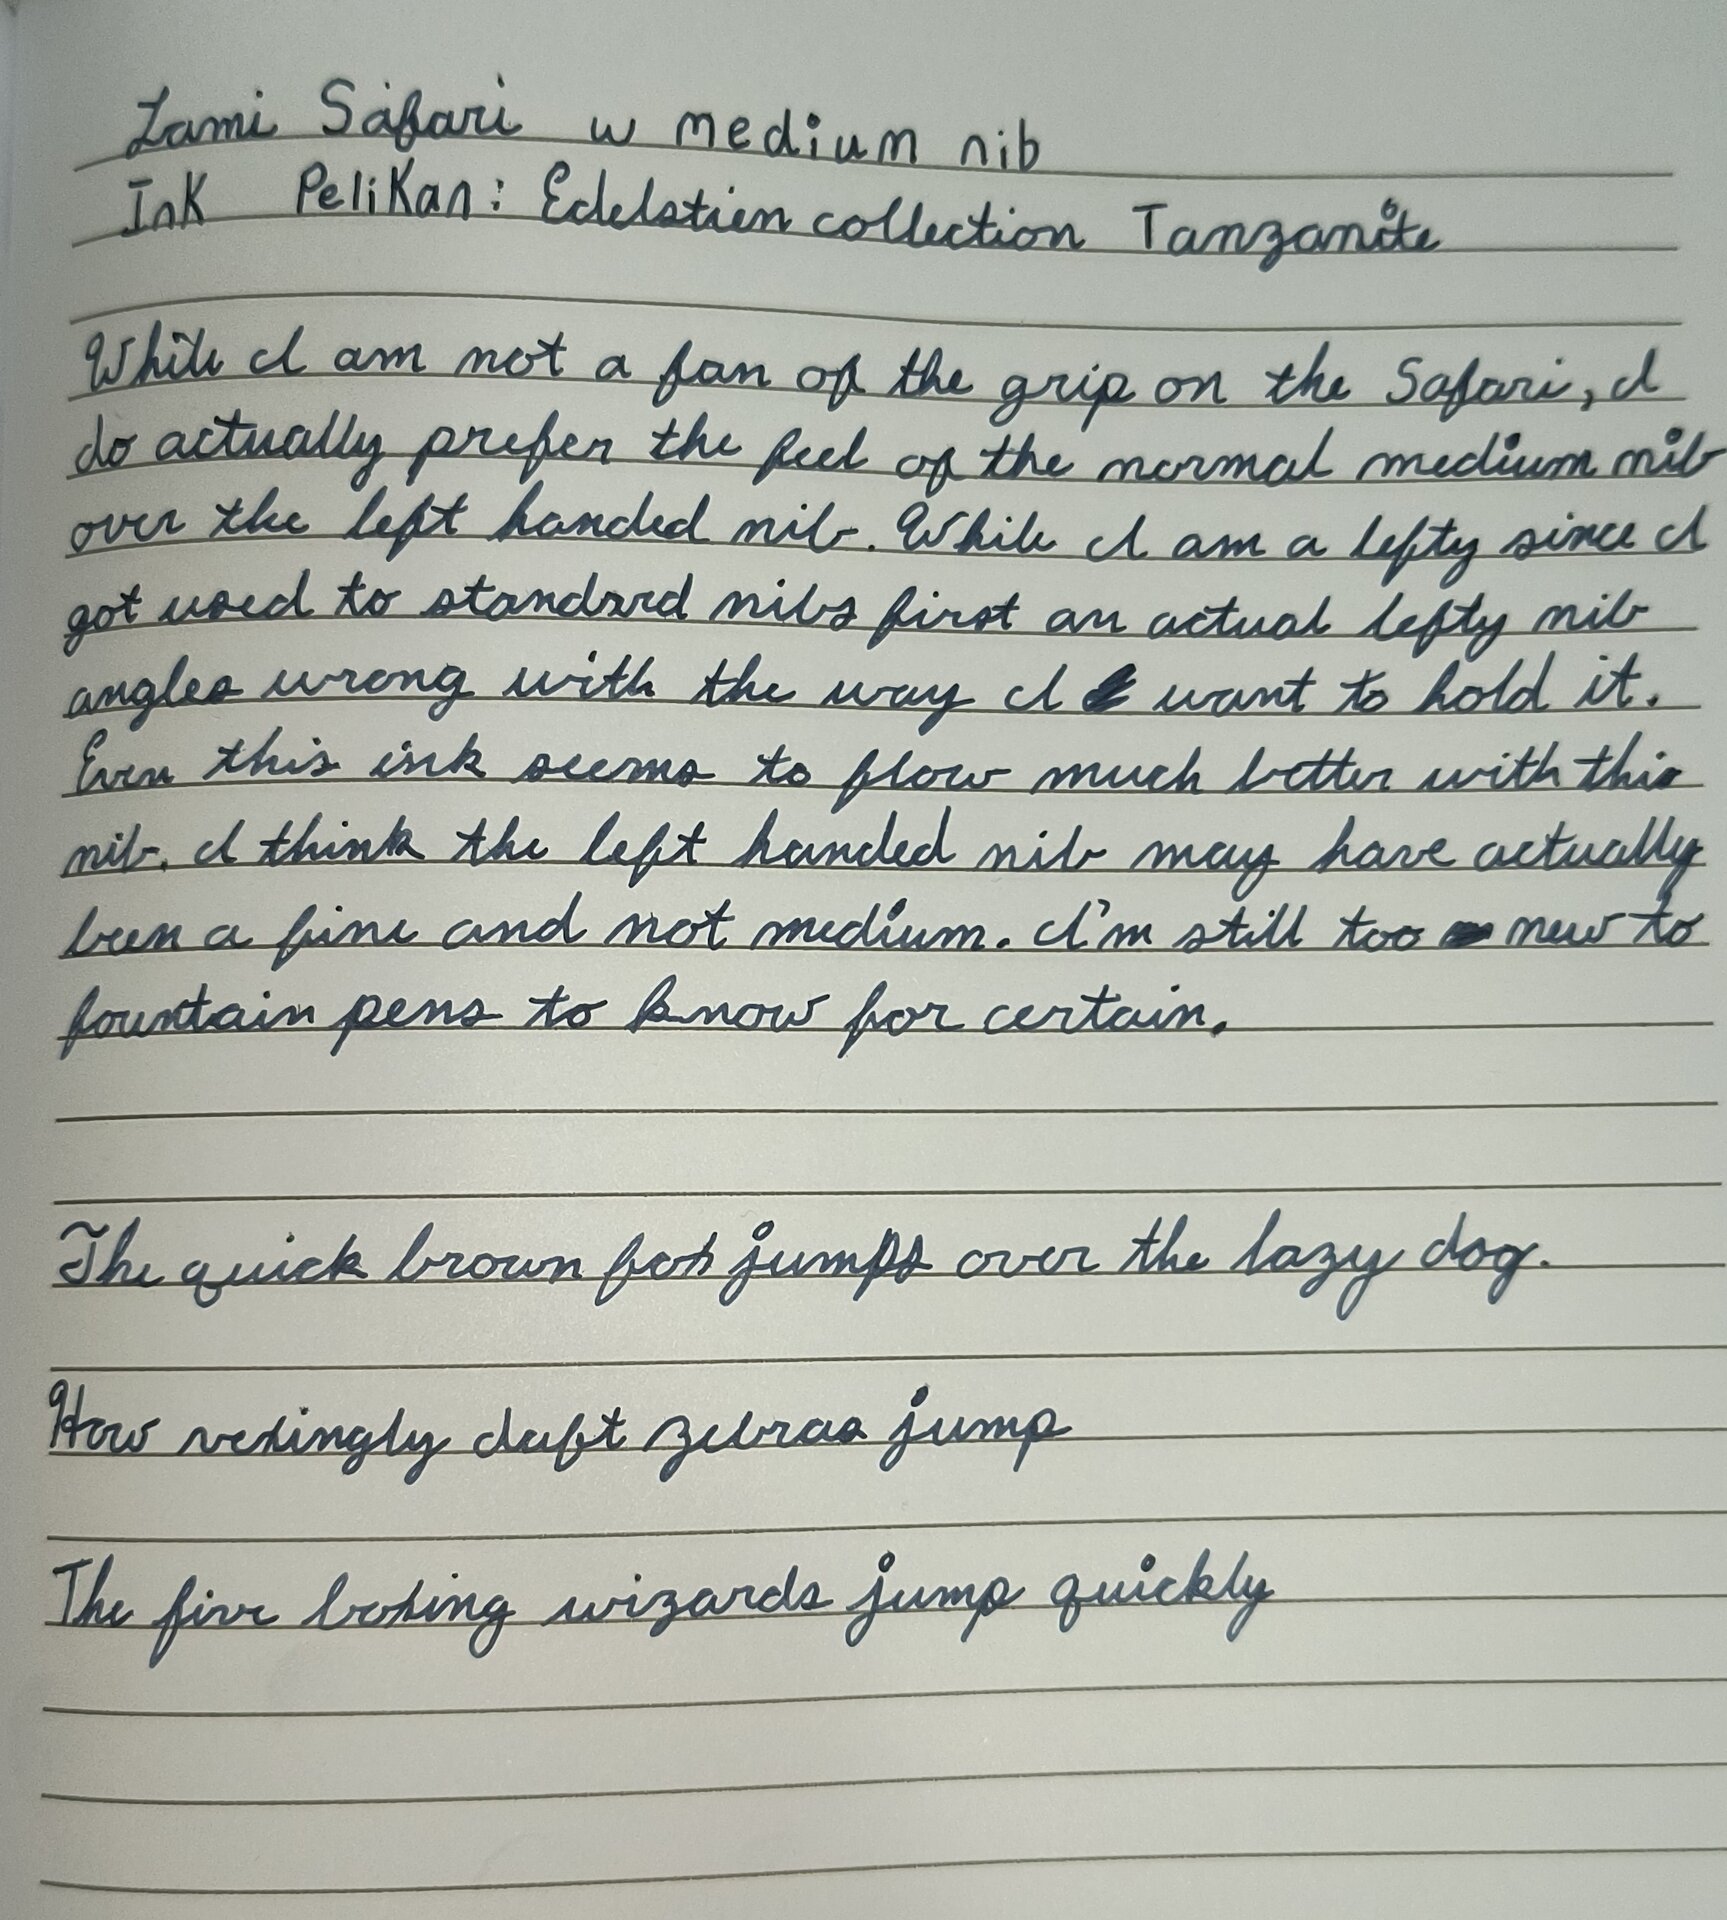 Lami Safari w medium nib
Ink Pelikan: Edelstien collection Tanzanite
While I am not a fan of the grip on the Safari, I
do actually prefer the feel of the normal medium nib
over the left handed nib. While I am a lefty since I
got used to standard nibs first an actual lefty nib
angles wrong with the way I want to hold it.
Even this ink seems to flow much better with this
nib. I think the left handed nib may have actually
been a fine and not medium. I'm still too new to
fountain pens to know for certain.
The quick brown fox jumps over the lazy dog.
How vexingly daft zebras jump
The five boxing wizards jump quickly